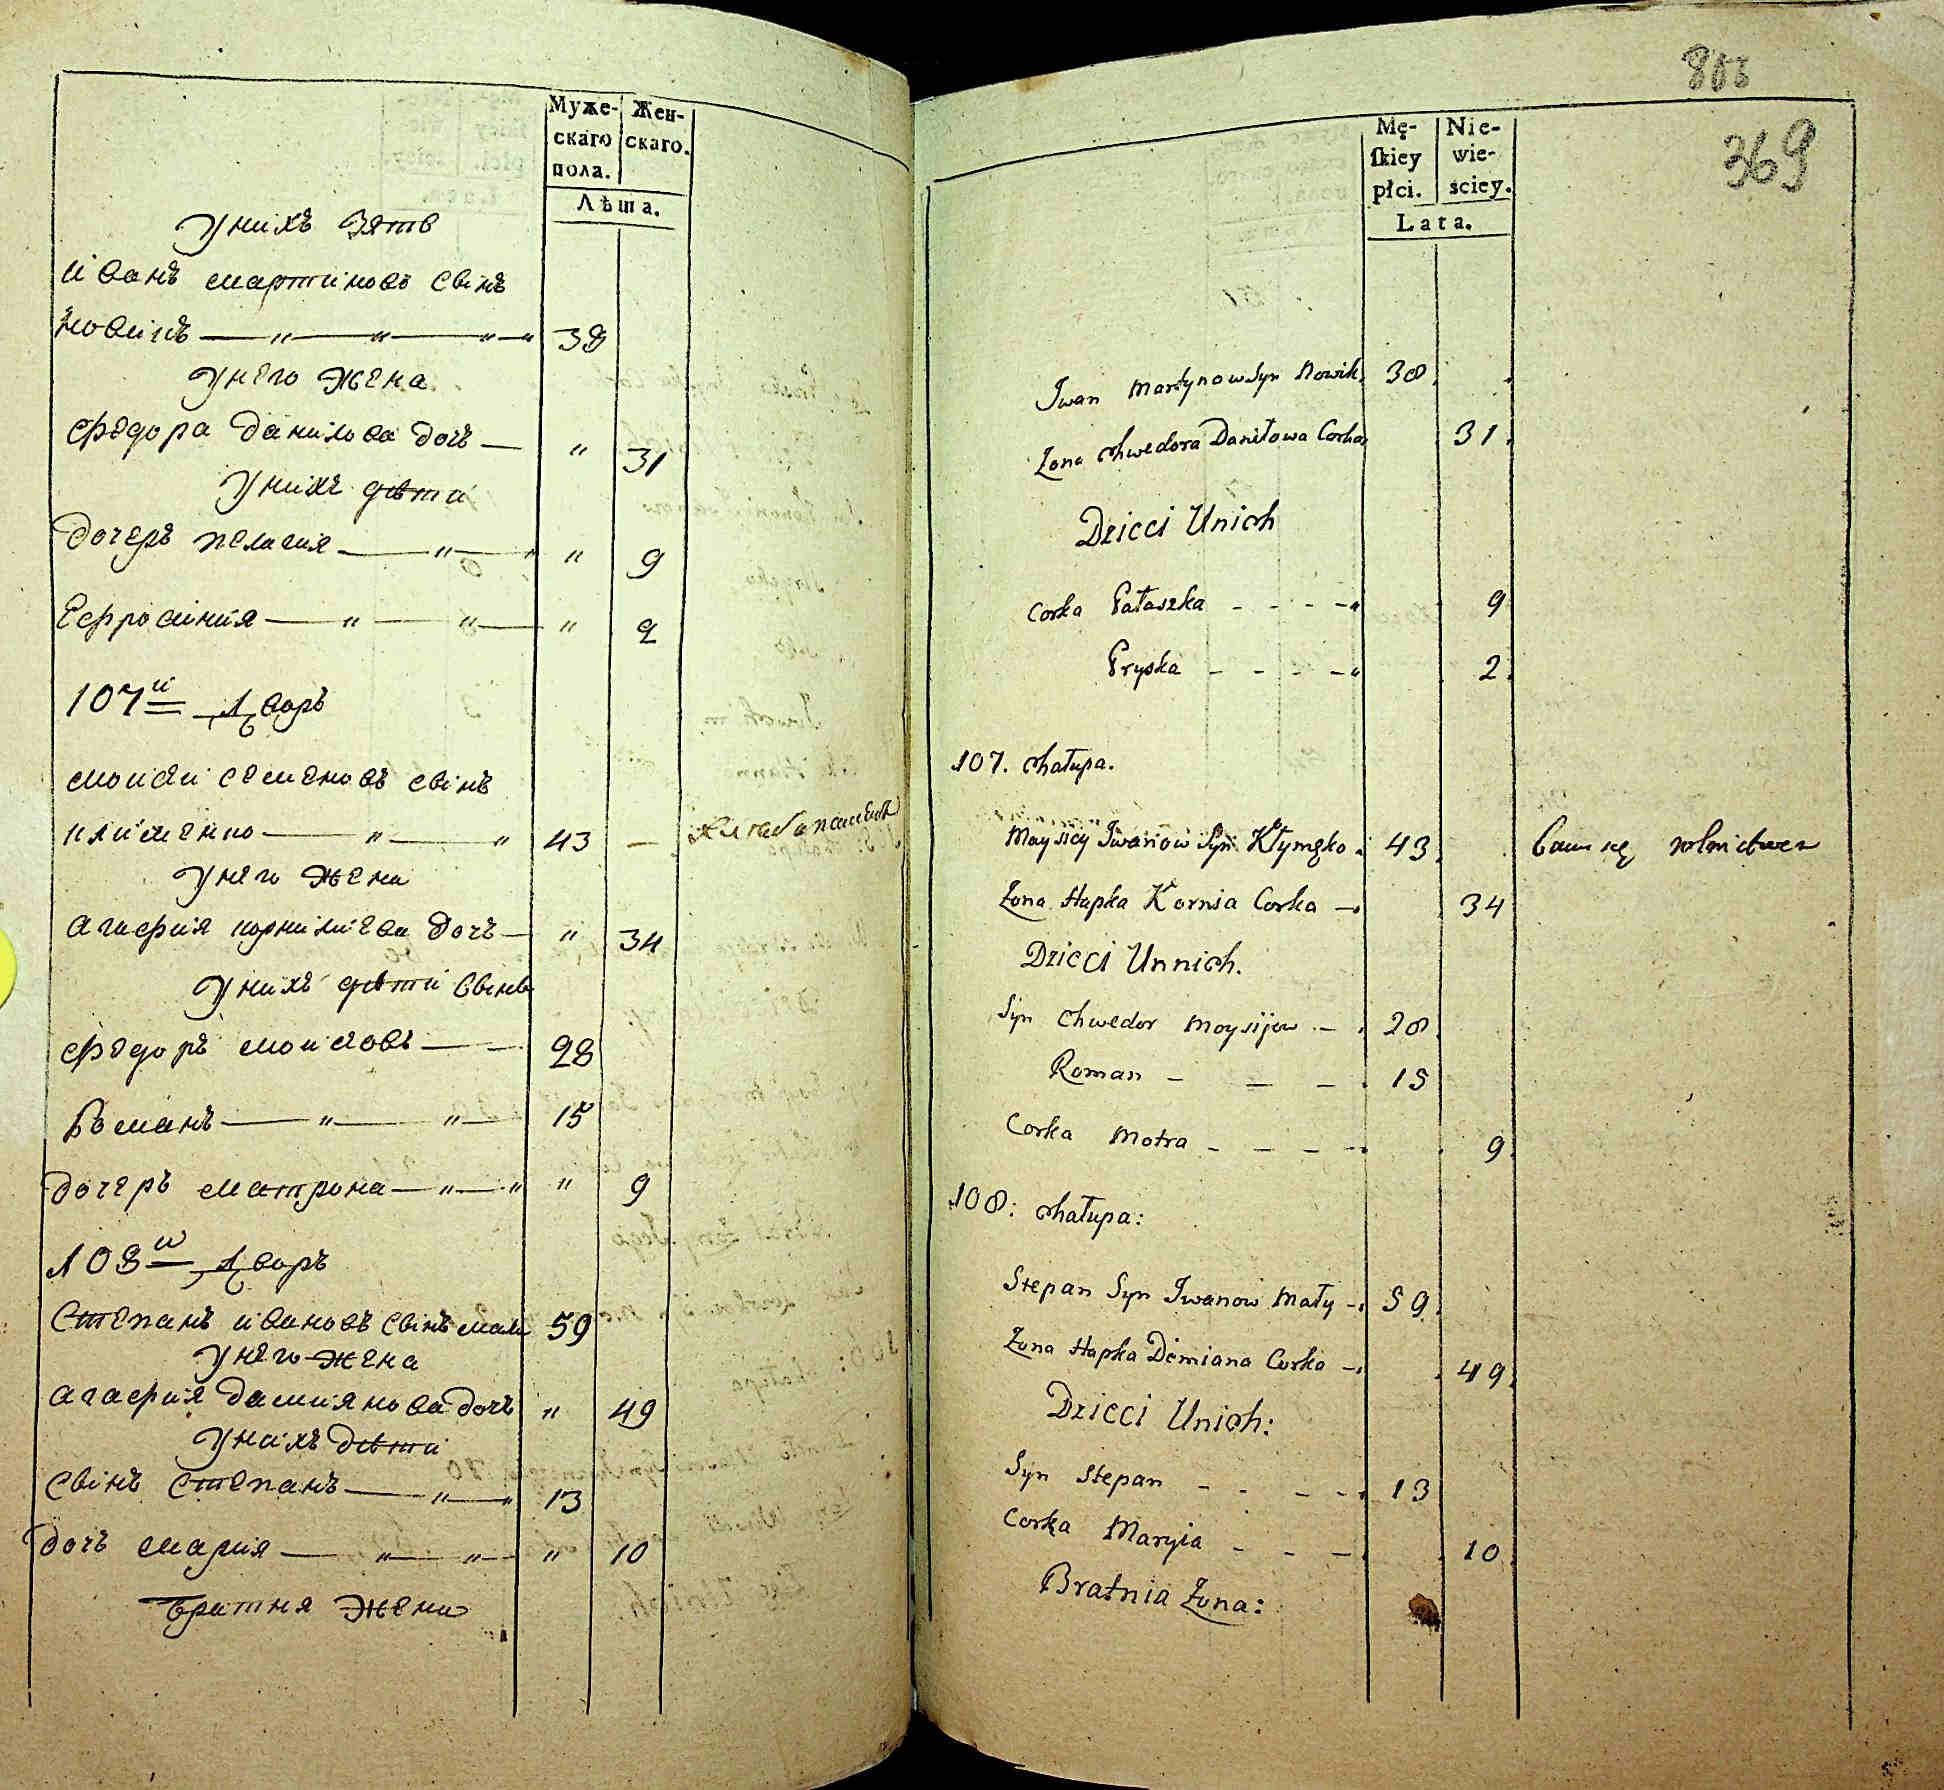 Муже-
скаго
пола.
Жен-
скаго.
Лѣта.
У нихъ зять
Иванъ мартиновъ синъ
новикъ 38
У него жена
Федора данилова дочь " 31
У нихъ дѣти
Дочеръ пелагия " 9
Ефросиния " 2
107й Дворъ
моисей семеновъ синъ
клименко 43
У него жена
агафия корнилиева дочь " 34
У нихъ дѣти сини
Федоръ моисеовъ 28
Романъ 15
дочеръ матрона " 9
108й Дворъ
Степанъ ивановъ синъ мали 59
У него жена
агафия дамиянова дочь " 49
У нихъ дѣти
синъ степанъ 13
дочь мария " 10
братня жена
369
Mę-
skiey
płci.
Nie-
wie-
sciey.
Lata.
Iwan Martynow Syn Nowik 38
Żona Chwedora Daniłowa Corka 31
Dzieci Unich
Corka Pałaszka 9
Pryska 2
107. Chałupa.
Mayjiey Iwanow Syn Kłymęko 43
Żona Hapka Kornia Corka 34
Dzieci Unnich.
Syn Chwedor Moysijow 28
Roman 15
Corka Motra 9
108: Chałupa:
Stepan Syn Iwanow Mały 59
Żona Hapka Demiana Corka 49
Dzieci Unich:
Syn Stepan 13
Corka Maryia 10
Bratnia Żona: